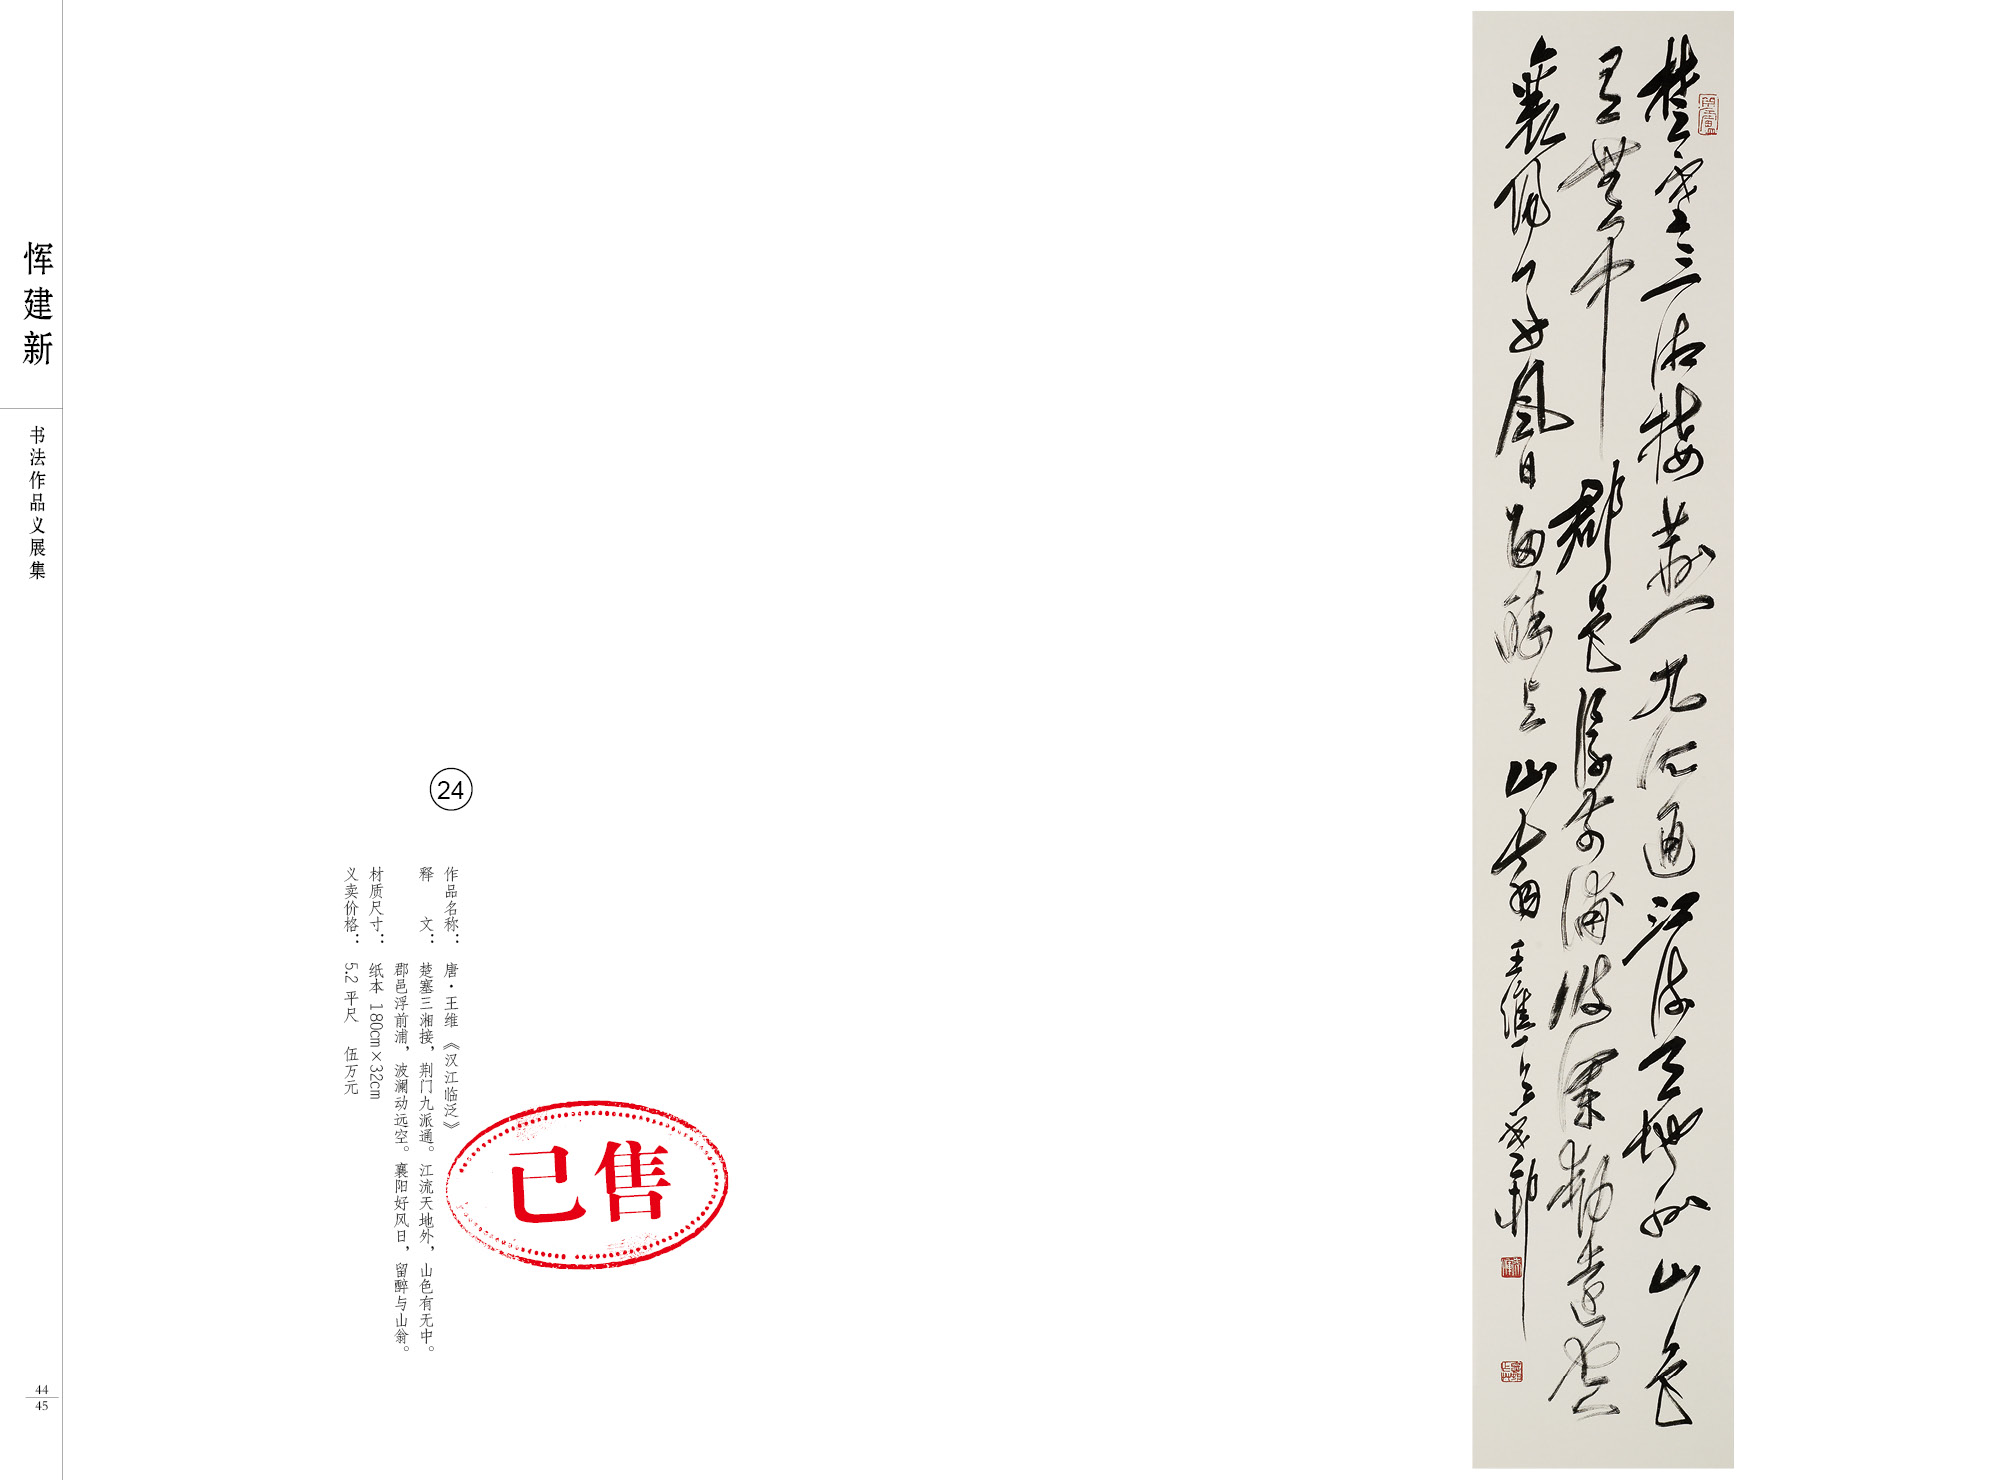 恽建新
书法作品义展集
24
作品名称： 唐·王维《汉江临泛》
释　文： 楚塞三湘接，荆门九派通。江流天地外，山色有无中。
郡邑浮前浦，波澜动远空。襄阳好风日，留醉与山翁。
材质尺寸： 纸本 180cm×32cm
义卖价格： 5.2 平尺　伍万元
已售
44
45
楚塞三湘接荆门九派通江流天地外山色
有无中郡邑浮前浦波澜动远空
襄阳好风日留醉与山翁王维